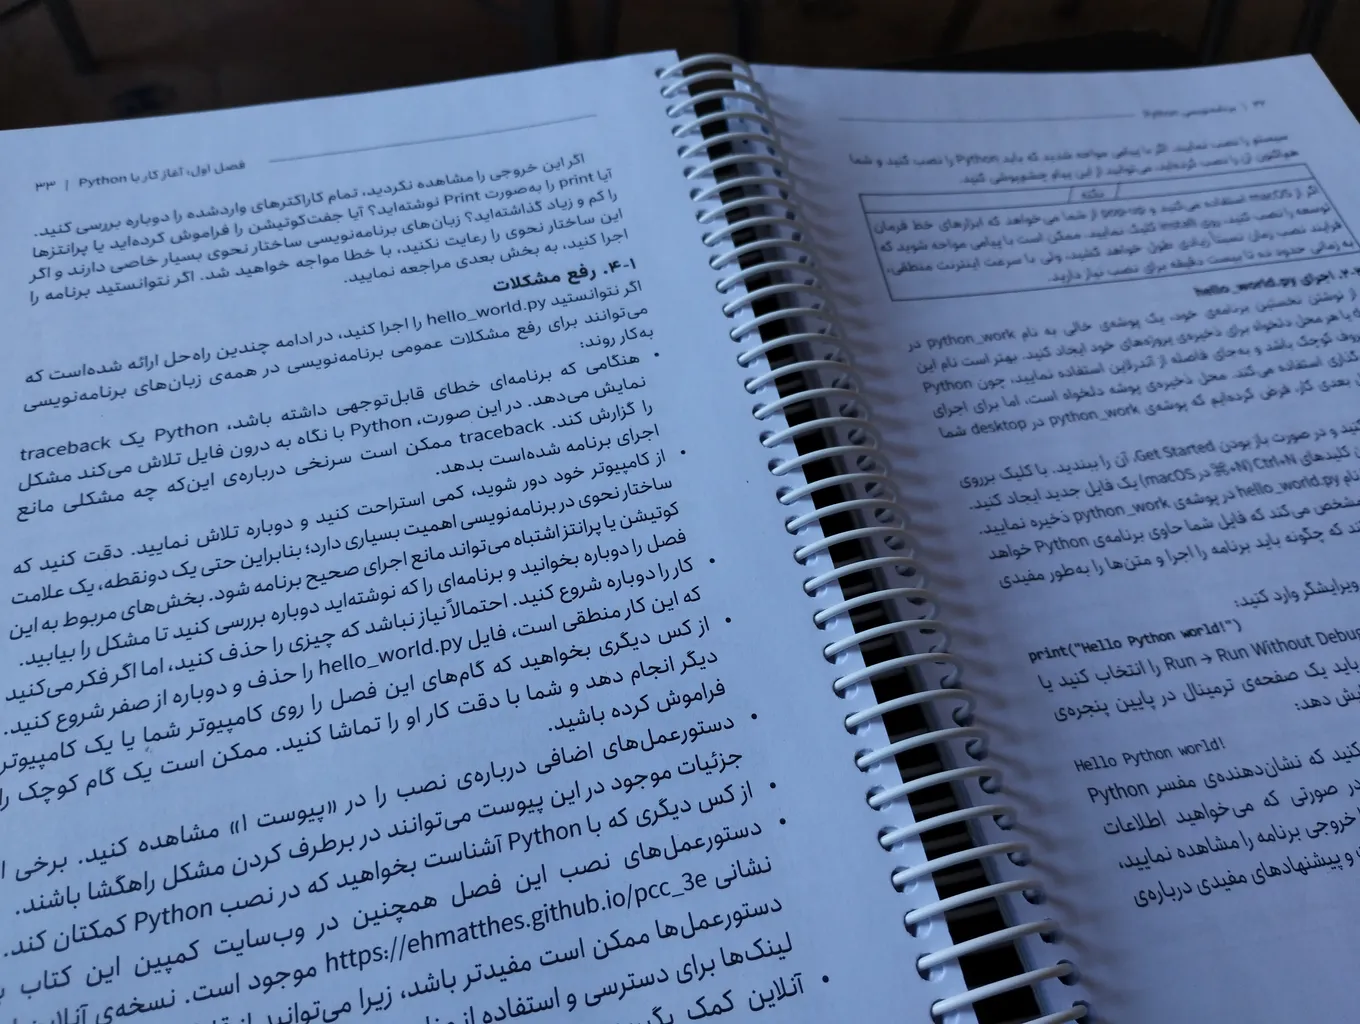 ۳۲ | برنامه‌نویسی Python
سیستم را نصب نمایید. اگر با پیامی مواجه شدید که باید Python را نصب کنید و شما
هم‌اکنون آن را نصب کرده‌اید، می‌توانید از این پیام چشم‌پوشی کنید.
نکته
اگر از macOS استفاده می‌کنید و pop-up از شما می‌خواهد که ابزارهای خط فرمان
توسعه را نصب کنید، روی Install کلیک نمایید. ممکن است با پیامی مواجه شوید که
فرایند نصب زمان نسبتاً زیادی طول خواهد کشید، ولی با سرعت اینترنت منطقی،
به زمانی حدود ده تا بیست دقیقه برای نصب نیاز دارید.
اجرای hello_world.py
از نوشتن نخستین برنامه‌ی خود، یک پوشه‌ی خالی به نام python_work در
یا هر محل دلخواه برای ذخیره‌ی پروژه‌های خود ایجاد کنید. بهتر است نام این
حروف کوچک باشد و به‌جای فاصله از آندرلاین استفاده نمایید، چون Python
گذاری استفاده می‌کند. محل ذخیره‌ی پوشه دلخواه است، اما برای اجرای
بعدی کار، فرض کرده‌ایم که پوشه‌ی python_work در desktop شما
کنید و در صورت باز بودن Get Started، آن را ببندید. با کلیک برروی
کلیدهای Ctrl+N (⌘+N در macOS) یک فایل جدید ایجاد کنید.
نام hello_world.py در پوشه‌ی python_work ذخیره نمایید.
مشخص می‌کند که فایل شما حاوی برنامه‌ی Python خواهد
که چگونه باید برنامه را اجرا و متن‌ها را به‌طور مفیدی
ویرایشگر وارد کنید:
print("Hello Python world!")
Run → Run Without Debug را انتخاب کنید یا
باید یک صفحه‌ی ترمینال در پایین پنجره‌ی
دهد:
Hello Python world!
کنید که نشان‌دهنده‌ی مفسر Python
در صورتی که می‌خواهید اطلاعات
خروجی برنامه را مشاهده نمایید،
و پیشنهادهای مفیدی درباره‌ی
فصل اول: آغاز کار با Python | ۳۳
اگر این خروجی را مشاهده نکردید، تمام کاراکترهای واردشده را دوباره بررسی کنید.
آیا print را به‌صورت Print نوشته‌اید؟ آیا جفت‌کوتیشن را فراموش کرده‌اید یا پرانتزها
را کم و زیاد گذاشته‌اید؟ زبان‌های برنامه‌نویسی ساختار نحوی بسیار خاصی دارند و اگر
این ساختار نحوی را رعایت نکنید، با خطا مواجه خواهید شد. اگر نتوانستید برنامه را
اجرا کنید، به بخش بعدی مراجعه نمایید.
۱-۴. رفع مشکلات
اگر نتوانستید hello_world.py را اجرا کنید، در ادامه چندین راه‌حل ارائه شده‌است که
می‌توانند برای رفع مشکلات عمومی برنامه‌نویسی در همه‌ی زبان‌های برنامه‌نویسی
به‌کار روند:
• هنگامی که برنامه‌ای خطای قابل‌توجهی داشته باشد، Python یک traceback
نمایش می‌دهد. در این صورت، Python با نگاه به درون فایل تلاش می‌کند مشکل
را گزارش کند. traceback ممکن است سرنخی درباره‌ی این‌که چه مشکلی مانع
اجرای برنامه شده‌است بدهد.
• از کامپیوتر خود دور شوید، کمی استراحت کنید و دوباره تلاش نمایید. دقت کنید که
ساختار نحوی در برنامه‌نویسی اهمیت بسیاری دارد؛ بنابراین حتی یک دونقطه، یک علامت
کوتیشن یا پرانتز اشتباه می‌تواند مانع اجرای صحیح برنامه شود. بخش‌های مربوط به این
فصل را دوباره بخوانید و برنامه‌ای را که نوشته‌اید دوباره بررسی کنید تا مشکل را بیابید.
• کار را دوباره شروع کنید. احتمالاً نیاز نباشد که چیزی را حذف کنید، اما اگر فکر می‌کنید
که این کار منطقی است، فایل hello_world.py را حذف و دوباره از صفر شروع کنید.
• از کس دیگری بخواهید که گام‌های این فصل را روی کامپیوتر شما یا یک کامپیوتر
دیگر انجام دهد و شما با دقت کار او را تماشا کنید. ممکن است یک گام کوچک را
فراموش کرده باشید.
• دستورعمل‌های اضافی درباره‌ی نصب را در «پیوست ا» مشاهده کنید. برخی
جزئیات موجود در این پیوست می‌توانند در برطرف کردن مشکل راهگشا باشند.
• از کس دیگری که با Python آشناست بخواهید که در نصب Python کمکتان کند.
• دستورعمل‌های نصب این فصل همچنین در وب‌سایت کمپین این کتاب
نشانی https://ehmatthes.github.io/pcc_3e موجود است. نسخه‌ی آنلاین
دستورعمل‌ها ممکن است مفیدتر باشد، زیرا می‌توانید از
لینک‌ها برای دسترسی و استفاده از
• آنلاین کمک